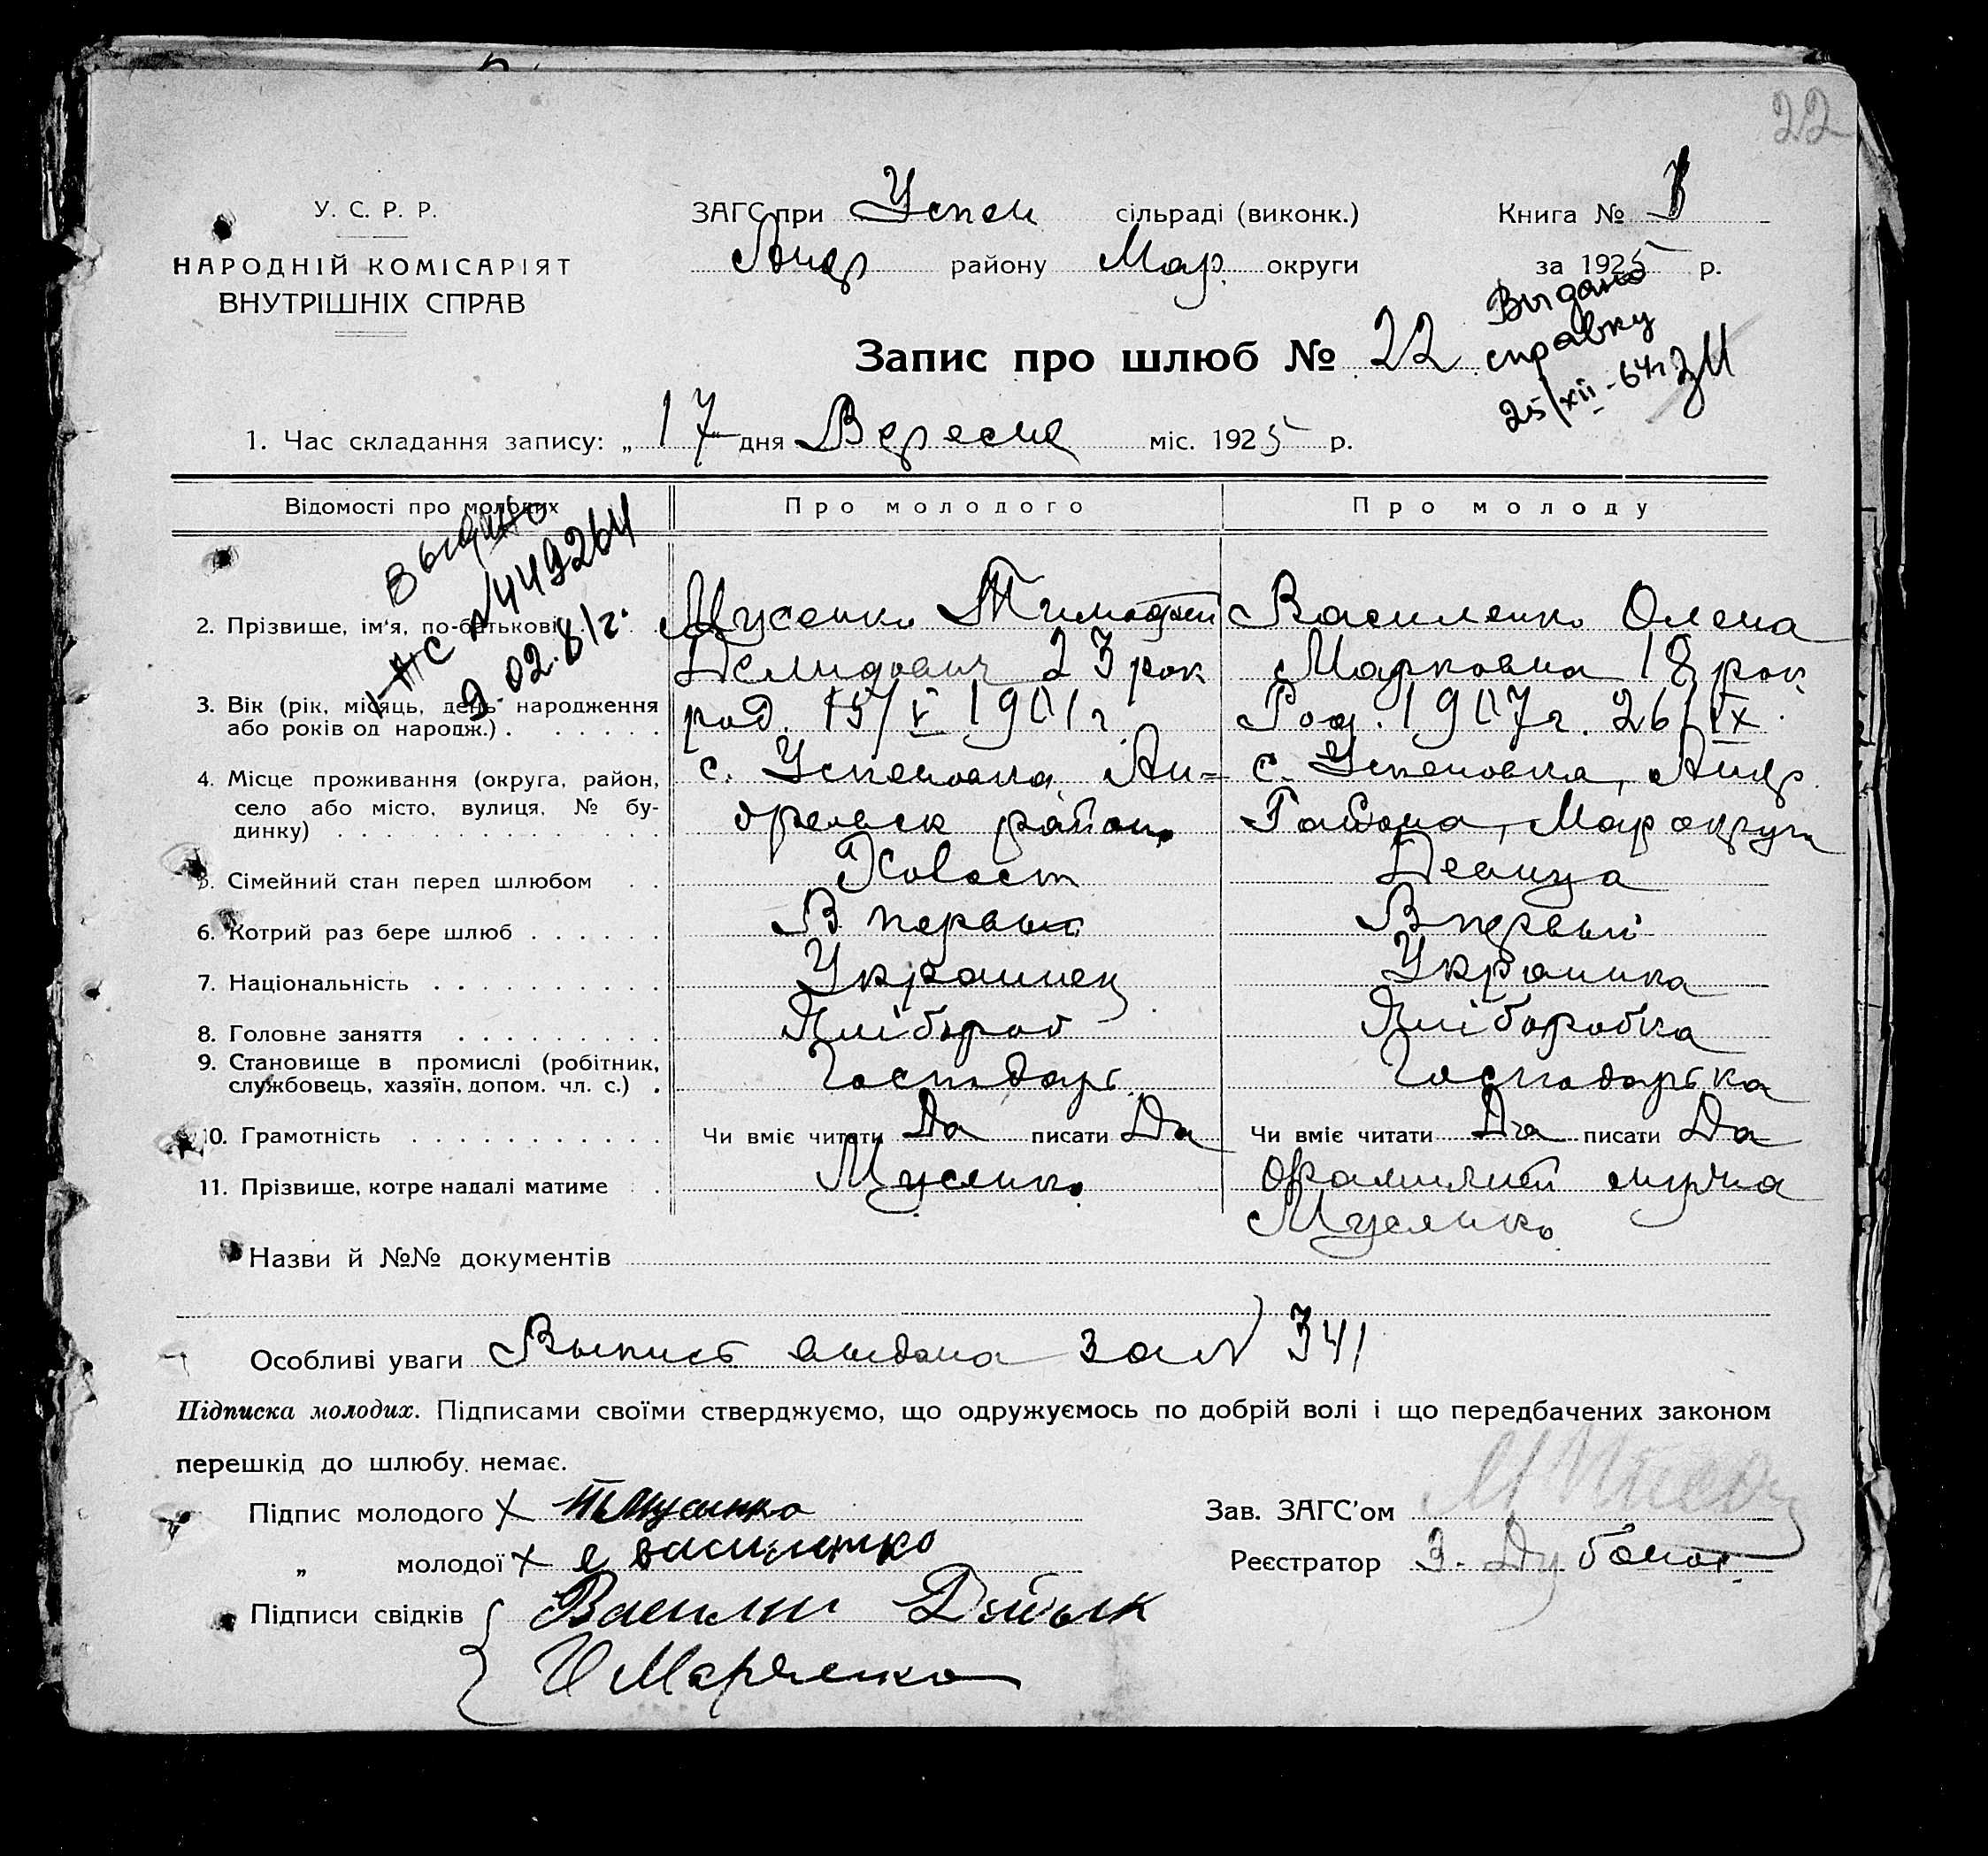 22
У. С. Р. Р.
НАРОДНІЙ КОМІСАРІЯТ
ВНУТРІШНІХ СПРАВ
ЗАГС при Успен сільраді (виконк.)
Андр району Мар. округи
Книга №
за 1925 р.
Запис про шлюб № 22
Выдано
справку
25/XII-64г
1. Час складання запису: „17 дня Вересня міс. 1925 р.
Відомості про молодих
Про молодого
Про молоду
Выдано
I-ЖС N 449264
9.02.81г.
2. Прізвище, ім'я, по-батькові
Мусенко Тимофей
Демидович 23 рок
Василенко Олена
Марковна 18 рок
3. Вік (рік, місяць, день народження
або років од народж.)
род. 15/V 1901 г.
Род. 1907 г. 26/IX.
4. Місце проживання (округа, район,
село або місто, вулиця, № бу-
динку)
с. Успеновка, Ан-
дреевск район,
с. Успеновка, Андр
Района, Мар округи
5. Сімейний стан перед шлюбом
Холост
Девица
6. Котрий раз бере шлюб
В первый
В первый
7. Національність
Украинец
Украинка
8. Головне заняття
Хлібороб
Хлiборобка
9. Становище в промислі (робітник,
службовець, хазяїн, допом. чл. с.)
Господарь
Господарька
10. Грамотність
Чи вміє читати Да писати Да
Чи вміє читати Да писати Да
11. Прізвище, котре надалі матиме
Мусенко
Фамилией мужа
Мусенко
Назви й №№ документів
Особливі уваги Выпись выдана за N 341
Підписка молодих. Підписами своїми стверджуємо, що одружуємось по добрій волі і що передбачених законом
перешкід до шлюбу немає.
Підпис молодого х Т Мусенко
„ молодої х е василенко
Підписи свідків { Василий
И Марченко
Зав. ЗАГС'ом
Реєстратор